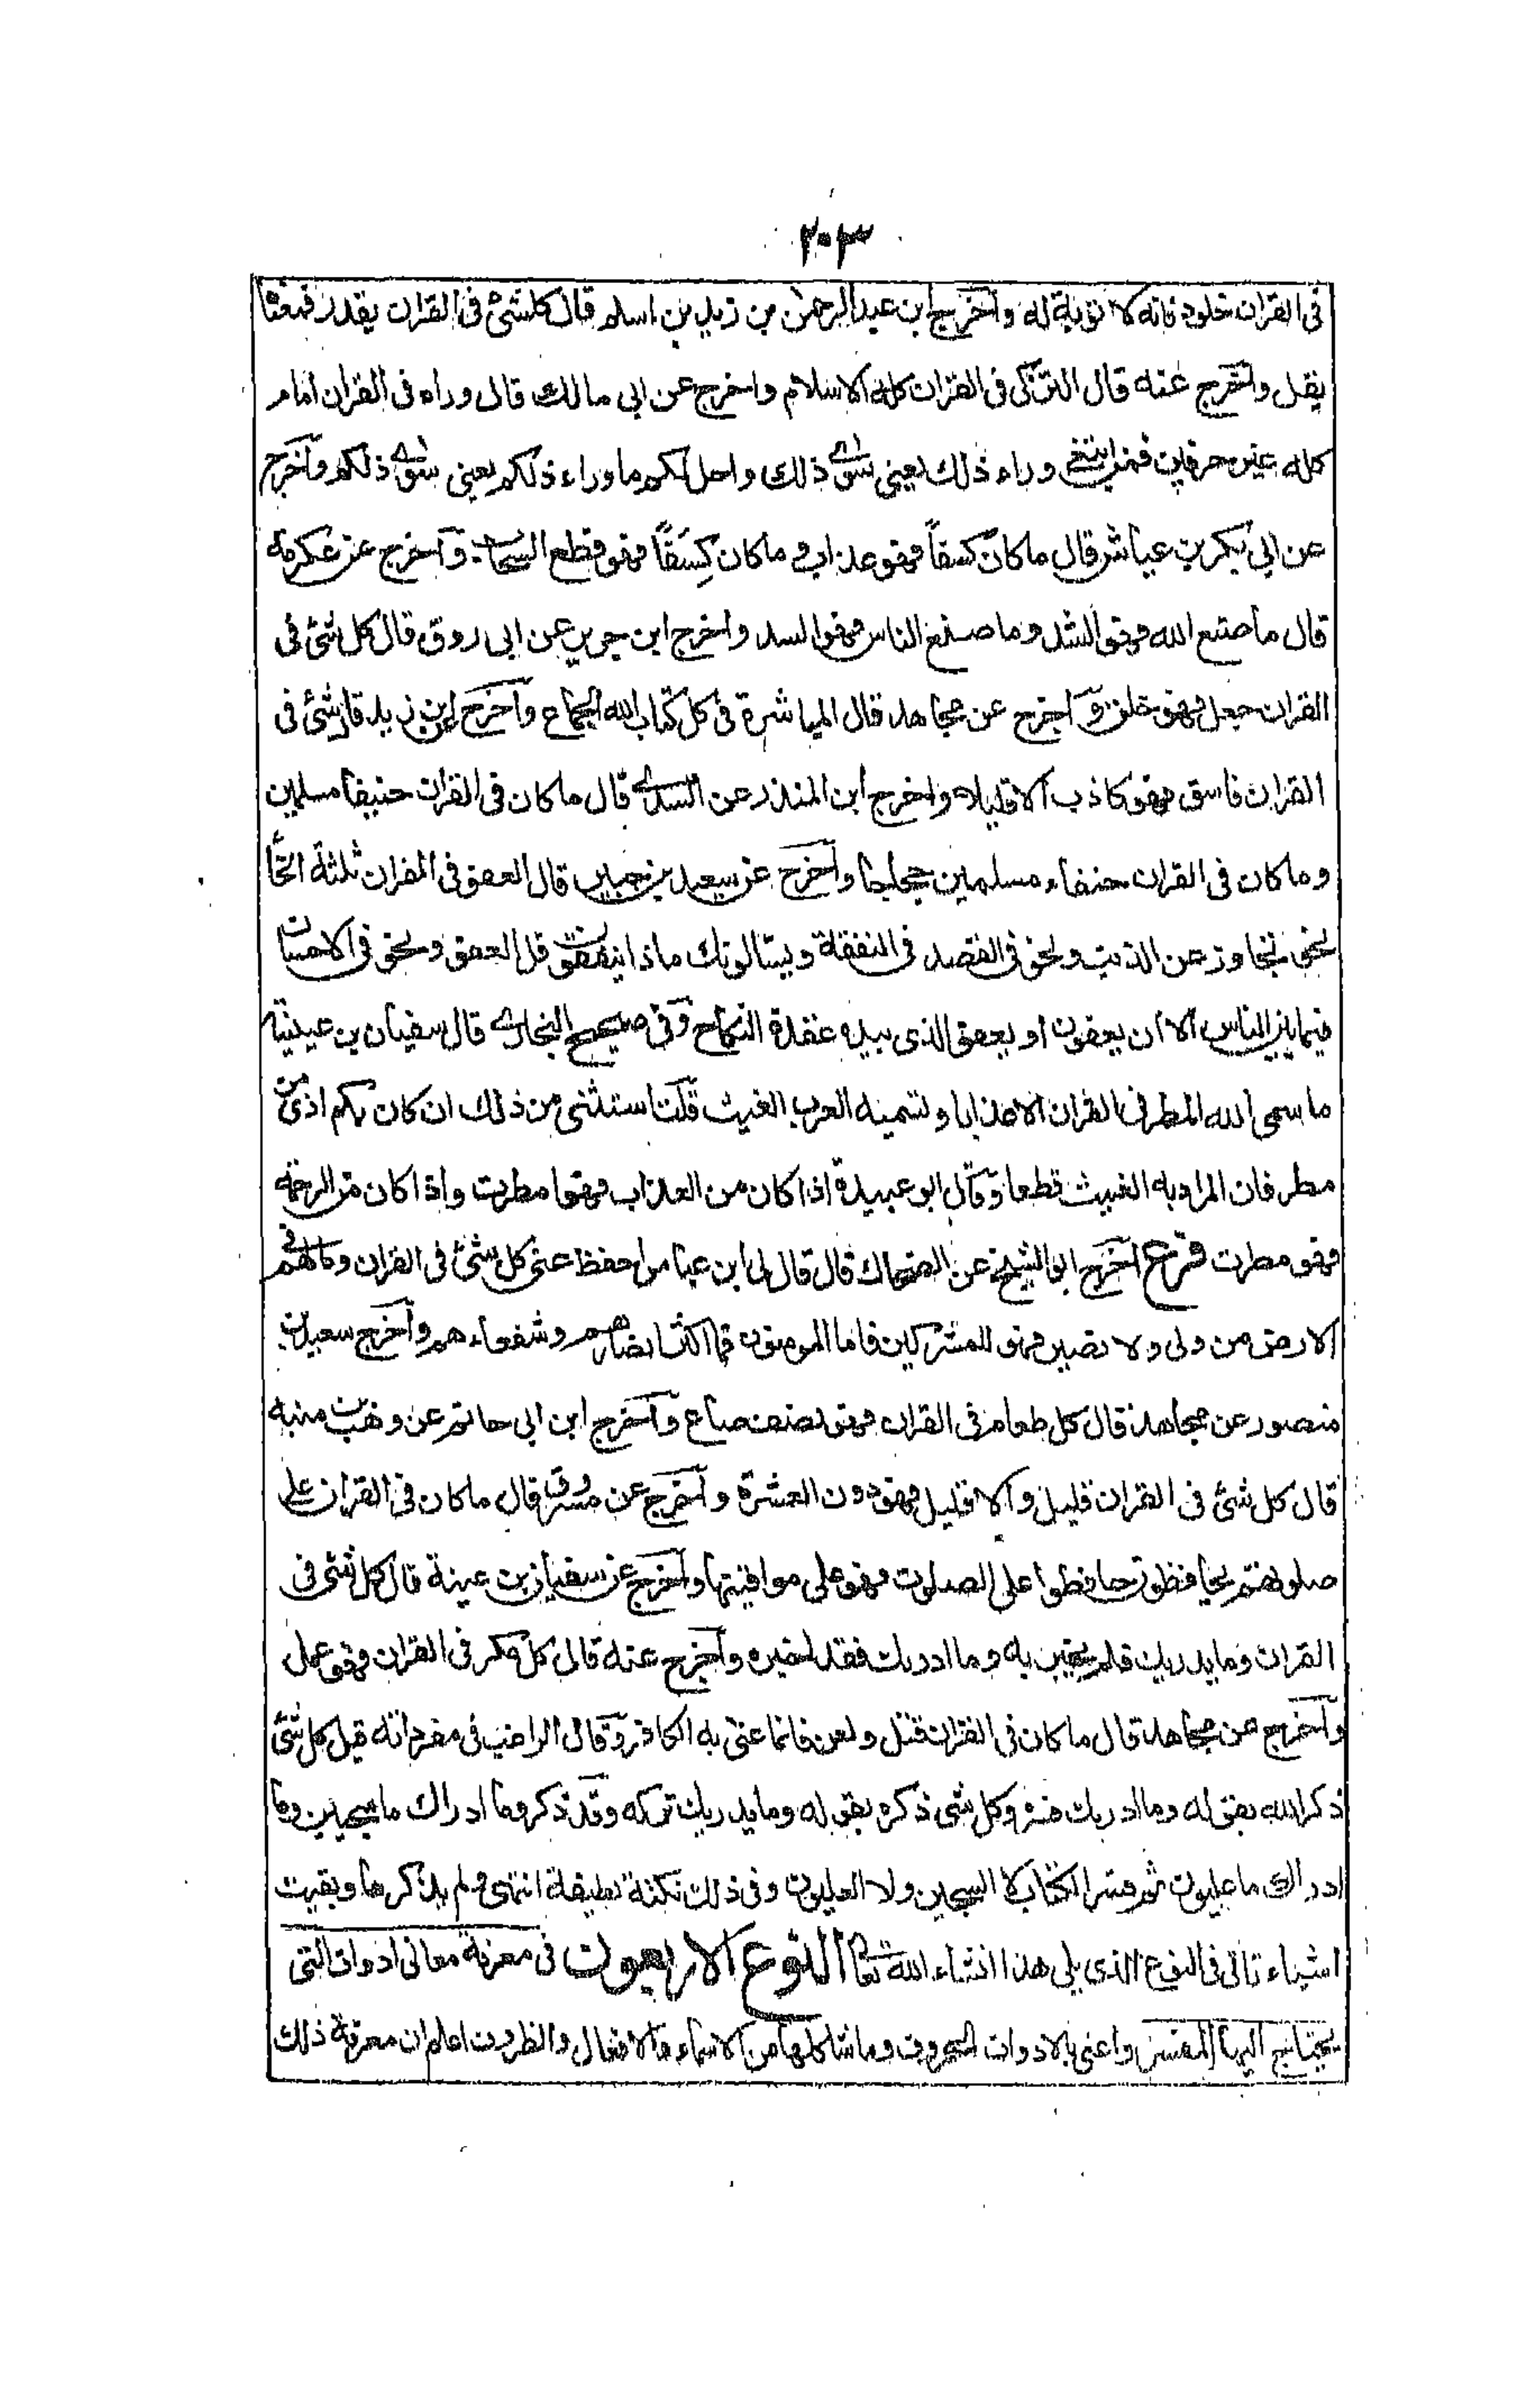 ٢٠٣
فى القران خلود فانه لا توبة له واخرج ابن عبد الرحمن بن زيد بن اسلم قال كل شئ فى القران يقدر فمعناه
يقل واخرج عنه قال التزكى فى القران كله الاسلام واخرج عن ابى مالك قال وراء فى القران امام
كله غير حرفين فمن ابتغى وراء ذلك يعنى سوى ذلك واحل لكم ما وراء ذلكم يعنى سوى ذلكم واخرج
عن ابى بكر بن عياش قال ما كان كسفاً فهو عذاب وما كان كِسَفًا فهو قطع السحاب واخرج عن عكرمة
قال ما صنع الله فهو السد وما صنع الناس فهو السد واخرج ابن جرير عن ابى روق قال كل شئ فى
القران جعل فهو خلق واخرج عن مجاهد قال المباشرة فى كل كتاب الله الجماع واخرج ابن زيد قال شئ فى
القران فاسق فهو كاذب الا قليلا واخرج ابن المنذر عن السدى قال ما كان فى القران حنيفا مسلمين
وما كان فى القران حنفاء مسلمين حجاجا واخرج عن سعيد بن جبير قال العفو فى القران ثلثة انحا
نحو تجاوز عن الذنب ونحو فى القصد فى النفقة ويسالونك ماذا ينفقون قل العفو ونحو فى الاحسان
فيما بين الناس الا ان يعفون او يعفو الذى بيده عقدة النكاح وفى صحيح البخارى قال سفيان بن عيينة
ما سمى الله المطر فى القران الا عذابا وتسميه العرب الغيث قلت استثنى من ذلك ان كان بكم اذى من
مطر فان المراد به الغيث قطعا وقال ابو عبيدة اذا كان من العذاب فهو امطرت واذا كان من الرحمة
فهو مطرت فرع اخرج ابو الشيخ عن الضحاك قال قال لى ابن عباس احفظ عنى كل شئ فى القران وما لهم فى
الارض من ولى ولا نصير فهو للمشركين فاما المومنون فما اكثر انصارهم وشفعاءهم واخرج سعيد بن
منصور عن مجاهد قال كل طعام فى القران فهو نصف صاع واخرج ابن ابى حاتم عن وهب بن منبه
قال كل شئ فى القران قليل والا قليل فهو دون العشرة واخرج عن مسروق قال ما كان فى القران على
صلوتهم يحافظون حافظوا على الصلوت فهو على مواقيتها واخرج عن سفيان بن عينة قال كل شئ فى
القران وما يدريك فلم يخبر به وما ادريك فقد اخبره واخرج عنه قال كل مكر فى القران فهو عمل
واخرج عن مجاهد قال ما كان فى القران قتل ولعن فانما عنى به الكافر وقال الراغب فى مفرداته قيل كل شئ
ذكر الله بقوله وما ادريك فسره وكل شئ ذكره بقوله وما يدريك تركه وقد ذكر وما ادراك ما سجين وما
ادراك ما عليون ثم فسر الكتاب لا السجين ولا العليون وفى ذلك نكتة لطيفة انتهى ولم يذكرها وبقيت
اشياء تاتى فى النوع الذى يلى هذا انشاء الله تعا النوع الاربعون فى معرفة معانى ادوات التى
يحتاج اليها المفسر واعنى بالادوات الحروف وما شاكلها من الاسماء والافعال والظروف اعلم ان معرفة ذلك